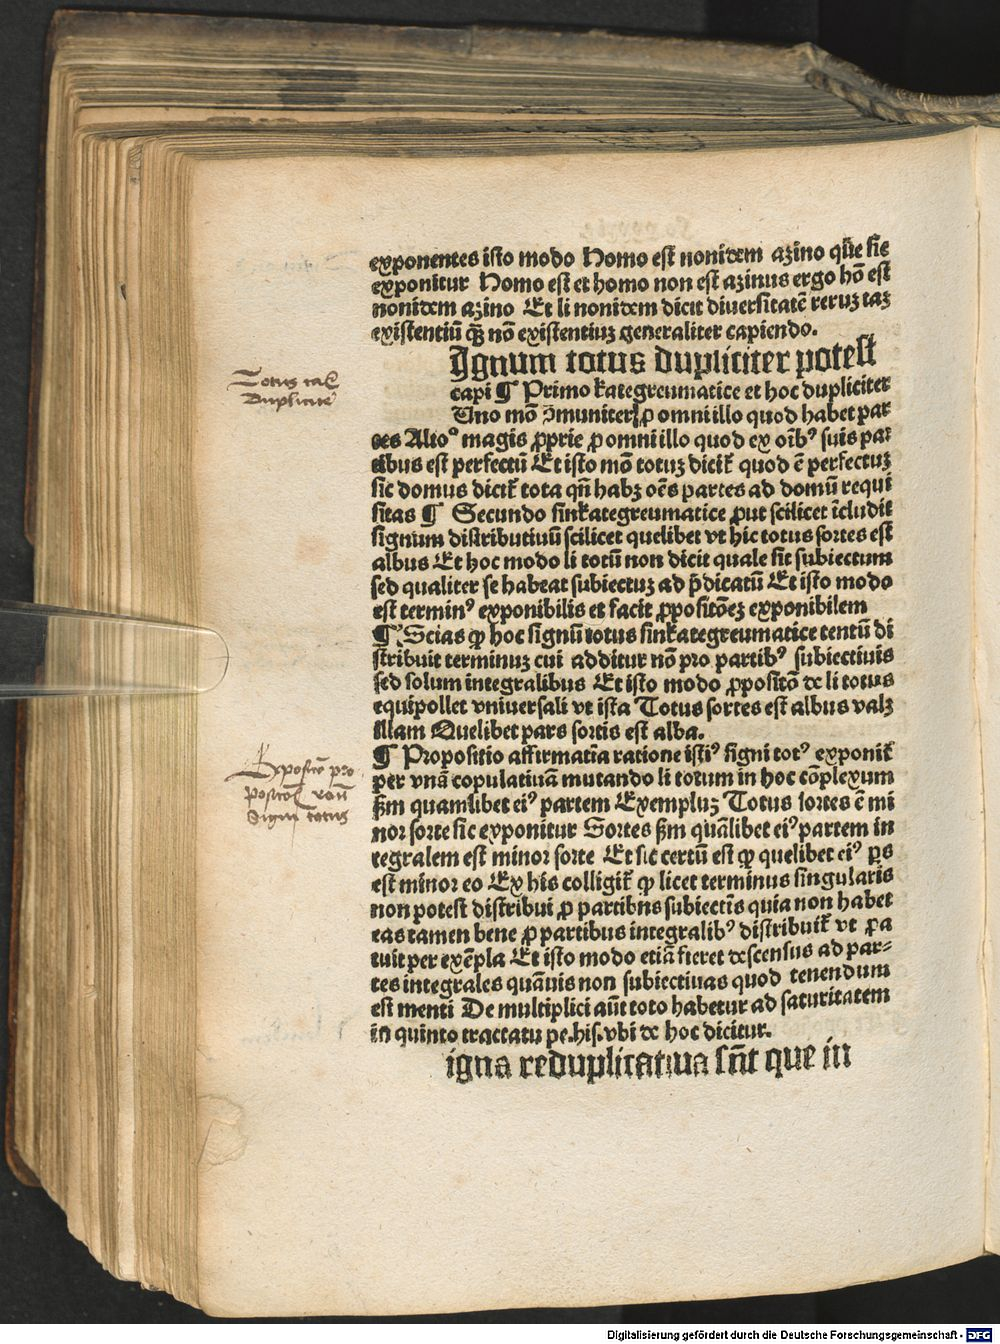 exponentes isto modo Homo est nonidem azino qūe sic
exponitur Homo est et homo non est azinus ergo hō est
nonidem azino Et li nonidem dicit diuersitatē reruʒ taʒ
existentiū qʒ̄ nō existentiuʒ generaliter capiendo.
Ignum totus dupliciter potest
capi ¶ Primo kategreumatice et hoc dupliciter
Uno mō ꝯmuniter ꝓ omni illo quod habet par
tes Alio° magis ꝓprie ꝓ omni illo quod ex oībꝰ suis par
tibus est perfectū Et isto mō totuʒ dicit̄ quod ē perfectuʒ
sic domus dicit̄ tota qn̄ habʒ oēs partes ad domū requi
sitas ¶ Secundo sinkategreumatice ꝓut scilicet īcludit
signum distributiuū scilicet quelibet vt hic totus sortes est
albus Et hoc modo li totū non dicit quale sit subiectum
sed qualiter se habeat subiectuʒ ad p̄dicatū Et isto modo
est terminꝰ exponibilis et facit ꝓpositōeʒ exponibilem
¶ Scias ꝙ hoc signū totus sinkategreumatice tentū di
stribuit terminuʒ cui additur nō pro partibꝰ subiectiuis
sed solum integralibus Et isto modo ꝓpositō de li totus
equipollet vniuersali vt ista Totus sortes est albus valʒ
illam Quelibet pars sortis est alba.
¶ Propositio affirmatīa ratione istiꝰ signi totꝰ exponit̄
per vnā copulatiuā mutando li totum in hoc cōplexum
ẜm quamlibet eiꝰ partem Exempluʒ Totus sortes ē mi
nor sorte sic exponitur Sortes ẜm quālibet eiꝰ partem in
tegralem est minor sorte Et sic certū est ꝙ quelibet eiꝰ ꝑs
est minor eo Ex his colligit̄ ꝙ licet terminus singularis
non potest distribui ꝓ partibus subiectīs quia non habet
eas tamen bene ꝓ partibus integralibꝰ distribuit̄ vt ꝓa
tuit per exēpla Et isto modo etiā fieret descensus ad par⸗
tes integrales quāuis non subiectiuas quod tenendum
est menti De multiplici aūt toto habetur ad saturitatem
in quinto tractatu pe.his. vbi de hoc dicitur.
igna reduplicatiua sūt que in
Totus
Dupliciter
Expositō pro
positōs
Signi totus
Digitalisierung gefördert durch die Deutsche Forschungsgemeinschaft - DFG